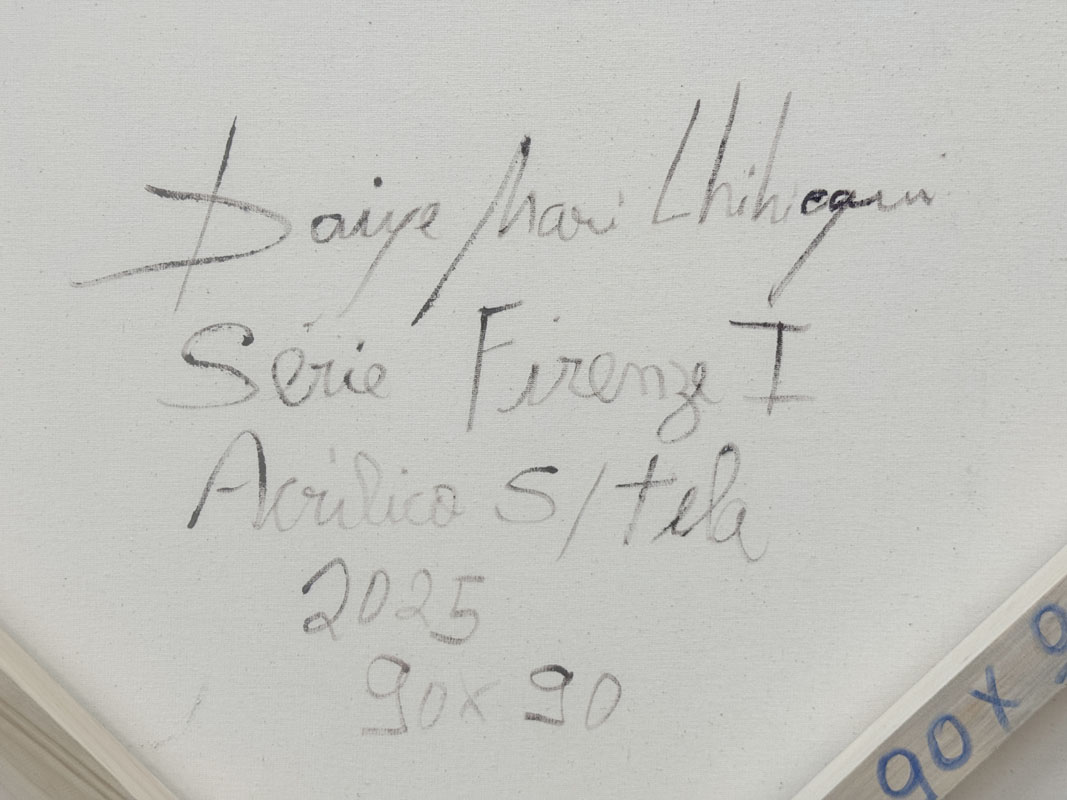 Daiye Mari
Série Firenze I
Acrílico S/tela
2025
90x90
90X9